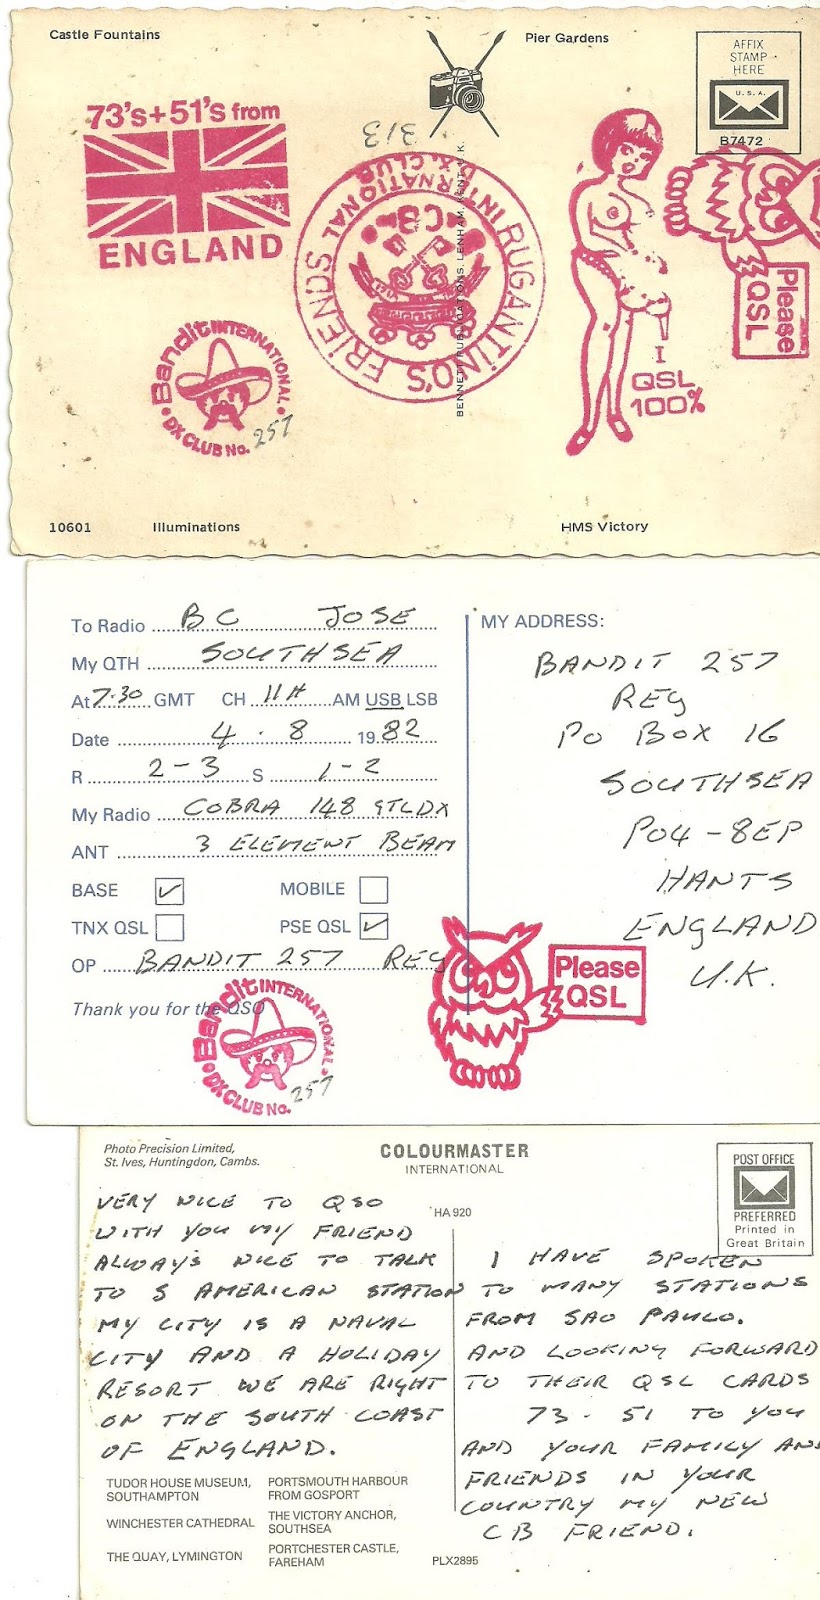 Castle Fountains
Pier Gardens
AFFIX
STAMP
HERE
U.S.A.
B7472
73's+51's from
ENGLAND
313
RUGANTINO'S FRIENDS
INTERNATIONAL
DX. CLUB
BENNETT PUBLICATIONS. LENHAM, KENT. U.K.
I
QSL
100%
Please
QSL
Bandit INTERNATIONAL
DX CLUB No. 257
10601
Illuminations
HMS Victory
To Radio BC JOSE
My QTH SOUTHSEA
At 7.30 GMT CH 11H AM USB LSB
Date 4 . 8 1982
R 2-3 S 1-2
My Radio COBRA 148 GTLDX
ANT 3 ELEMENT BEAM
BASE MOBILE
TNX QSL PSE QSL
OP BANDIT 257 REG
Thank you for the QSO
MY ADDRESS:
BANDIT 257
REG
PO BOX 16
SOUTHSEA
PO4-8EP
HANTS
ENGLAND
U.K.
Please
QSL
Bandit INTERNATIONAL
DX CLUB No. 257
Photo Precision Limited,
St. Ives, Huntingdon, Cambs.
COLOURMASTER
INTERNATIONAL
HA 920
POST OFFICE
PREFERRED
Printed in
Great Britain
VERY NICE TO QSO
WITH YOU MY FRIEND
ALWAYS NICE TO TALK
TO S AMERICAN STATION
MY CITY IS A NAVAL
CITY AND A HOLIDAY
RESORT WE ARE RIGHT
ON THE SOUTH COAST
OF ENGLAND.
I HAVE SPOKEN
TO MANY STATIONS
FROM SAO PAULO.
AND LOOKING FORWARD
TO THEIR QSL CARDS
73 - 51 TO YOU
AND YOUR FAMILY AND
FRIENDS IN YOUR
COUNTRY MY NEW
CB FRIEND.
TUDOR HOUSE MUSEUM,
SOUTHAMPTON
WINCHESTER CATHEDRAL
THE QUAY, LYMINGTON
PORTSMOUTH HARBOUR
FROM GOSPORT
THE VICTORY ANCHOR,
SOUTHSEA
PORTCHESTER CASTLE,
FAREHAM
PLX2895